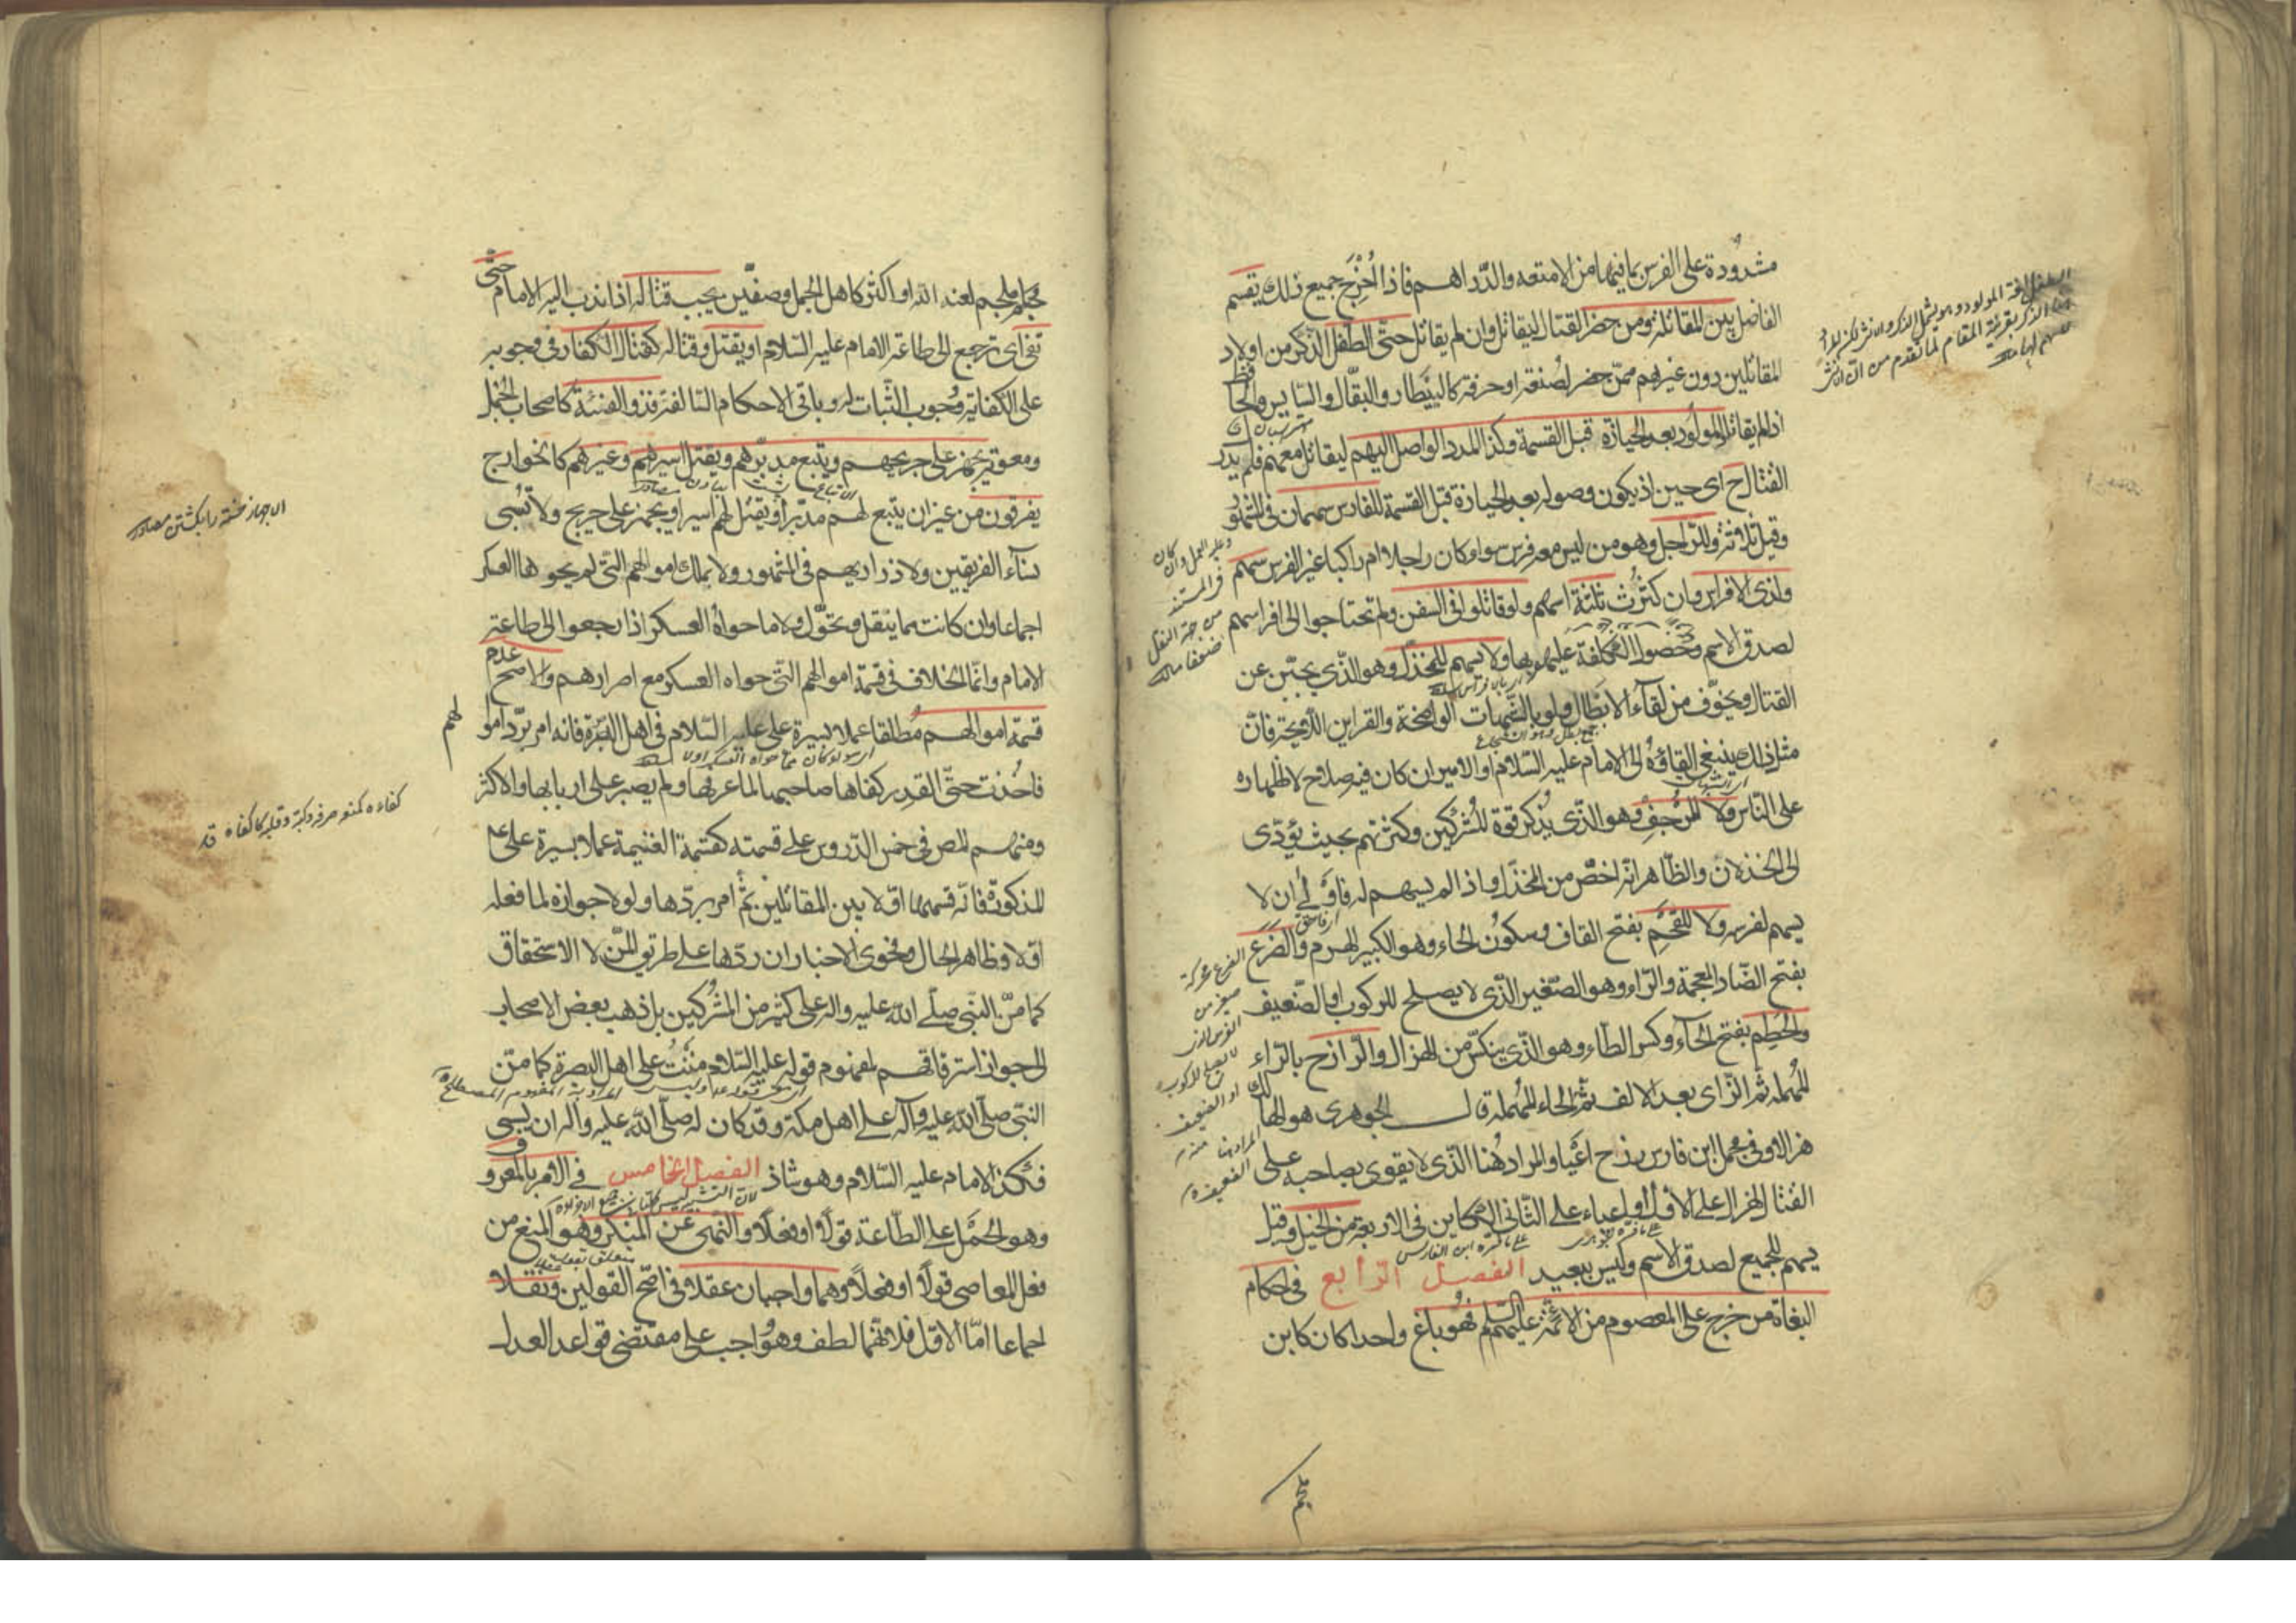 مشدودة على الفرس بما فيها من الامتعه والدّراهم فاذا اُخْرِجَ جميع ذلك يقسم
الفاضل بين المقاتلة ومن حضر القتال ليقاتل وان لم يقاتل حتّى الطفل الذّكر من اولاد
المقاتلين دون غيرهم ممّن حضر لصُنعة او حرفة كالبيَطار والبقّال والسّايس والحا
اذا لم يقاتلوا المولود بعد الحيازة قبل القسمة وكذا المدد الواصل اليهم ليقاتل معهم فلم يدرك
القتال ح اى حين اذ يكون وصوله بعد الحيازة قبل القسمة للفارس سهمان فى المشهُو
وقيل ثلاثة وللرّاجل وهو من ليس معه فرس سواء كان راجلا ام راكبا غير الفرس سهم
ولذى الافراس وان كثُرث ثلثة اسهم ولو قاتلوا فى السفن ولم تحتاجوا الى افراسهم
لصدق الاسم وحُصُول الكلفة عليهم بها ولا يسهم للمخذّل وهو الذّى يجبّن عن
القتال ويخوّف من لقاء الابطال ولو بالشّبهات الواضحة والقراين اللّايحة فانّ
مثل ذلك ينبغى القاؤهُ الى الامام عليه السّلام او الامير ان كان فيه صلاح لا اظهاره
على النّاس ولا للمُرجِفِ وهو الذّى يذكر قوة المُشركين وكثرتهم بحيث يؤدّى
الى الخذلان والظّاهر انّه اخصّ من المخذّل واذا لم يسهم له فاَوْلى ان لا
يسهم لفرسه ولا للقَحْم بفتح القاف وسكُون الحاء وهو الكبير الهرم والضَرَع
بفتح الضّاد المعجمة والرّاء وهو الصّغير الذّى لا يصلح للركوب او الضّعيف
والحَطِم بفتح الحاء وكسر الطّاء وهو الذّى ينكسّر من الهزال والرّازح بالرّاء
المُهملة ثمّ الزّاى بعد الالف ثمّ الحاء المُهملة قال الجوهرى هو الهالك
هزالا وفى مجمل ابن فارس رزح اعْيا والمراد هُنا الذّى لا يقوى بصاحبه على
القتال لهزال على الاوّل او لاعياء على الثّانى الكاين فى الاربعة من الخيل وقيل
يسهم للجميع لصدق الاسم وليس ببعيد الفصل الرّابع فى احكام
البغاة من خرج على المعصوم من الائمّة عليهم السّلم فهُو باغ واحدا كان كابن
ملجم
ملجم لعنه الله او اكثر كاهل الجمل وصفّين يجب قتاله اذا ندب اليه الامام حتّى
تفئ اى ترجع الى طاعة الامام عليه السّلام او يقتل وقتاله كقتال الكفار فى وجوبه
على الكفاية ووُجوب الثّبات له وباقى الاحكام السّالفة فذو الفئة كاصحاب الجمل
ومعوية يجهز على جريحهم ويتبع مدبرهم ويقتل اسيرهم وغيرهم كالخوارج
يفرقون من غير ان يتبع لهم مدبر او يقتل لهم اسير او يجهز على جريح ولا تُسبى
نساء الفريقين ولا ذراريهم فى المشهور ولا يملك اموالهم التى لم يحوها العسكر
اجماعا وان كانت مما ينقل ويحوّل ولا ما حواهُ العسكر اذا رجعوا الى طاعة
الامام وانّما الخلاف فى قسمة اموالهم التّى حواه العسكر مع اصرارهم والاصح عدم
قسمة اموالهم مُطلقا عملا بسيرة على عليه السّلام فى اهل البَصْرة فانّه امر بردّ اموالهم
فاخذت حتّى القدر كفاها صاحبها لما عرفها ولم يصبر على اربابها والاكثر
ومنهم المص فى خمس الدّروس على قسمته كقسمة الغنيمة عملا بسيرة على ع
المذكورة فانّه قسمها اوّلا بين المقاتلين ثمّ امر بردّها ولولا جوازه لما فعله
اوّلا وظاهر الحال وفحوى الاخبار ان ردّها على طريق المنّ لا الاستحقاق
كما منّ النّبى صلّى الله عليه واله على كثير من المُشركين بل ذهب بعض الاصحاب
الى جواز استرقاقهم لمفهوم قوله عليه السّلام مننتُ على اهل البصرة كما منّ
النبّى صلّى الله عليه وآله على اهل مكّة وقد كان له صلّى الله عليه وآله ان يسبى
فكذا الامام عليه السّلام وهو شاذ الفصل الخامس فى الامر بالمعروف
وهو الحَمْل على الطّاعة قولًا او فعلًا والنّهى عن المنكر وهو المنع من
فعل المعاصى قولًا او فعلًا وهما واجبان عقلا فى اصّح القولين ونقلا
اجماعا امّا الاوّل فلانّهما لطف وهو واجب على مقتضى قواعد العدل